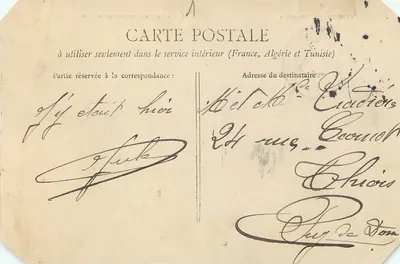 1
CARTE POSTALE
à utiliser seulement dans le service intérieur (France, Algérie et Tunisie)
Partie réservée à la correspondance :
Adresse du destinataire :
J'y étais hier
M et Me
24 rue Carnot
Thiers
Puy de Dom